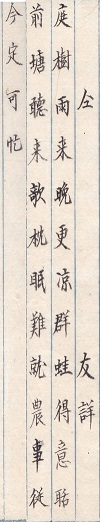 仝　友詳
庭樹雨来晚更涼群蛙得意聒
前塘聽来欹枕眠難就農事従
今定可忙